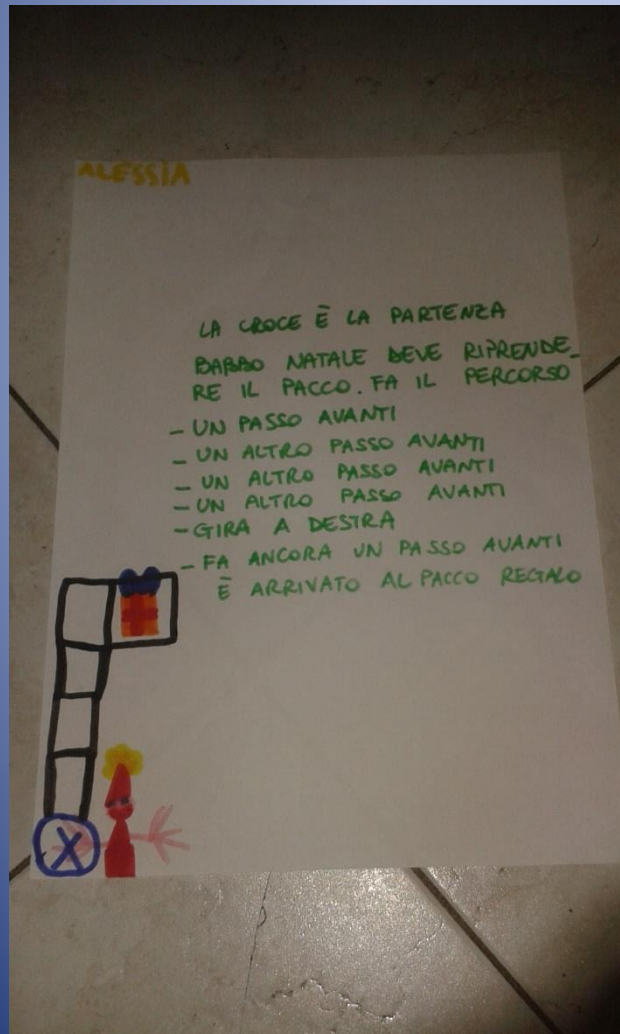 ALESSIA
LA CROCE È LA PARTENZA
BABBO NATALE DEVE RIPRENDE_
RE IL PACCO. FA IL PERCORSO
- UN PASSO AVANTI
- UN ALTRO PASSO AVANTI
- UN ALTRO PASSO AVANTI
- UN ALTRO PASSO AVANTI
- GIRA A DESTRA
- FA ANCORA UN PASSO AVANTI
È ARRIVATO AL PACCO REGALO
X